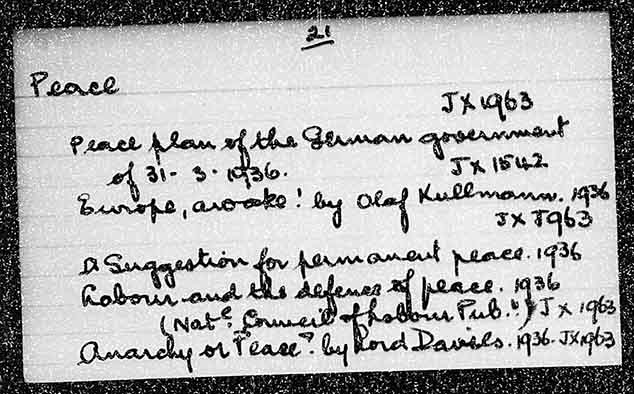 21
Peace
JX 1963
Peace plan of the German government
of 31-3-1936. JX 1542
Europe, awake! by Olaf Kullmann. 1936
JX J963
A Suggestion for permanent peace. 1936
Labour and the defence of peace. 1936
(Natc. Council of Labour Pub.n) JX 1963
Anarchy or Peace? by Lord Davies. 1936. JX1963